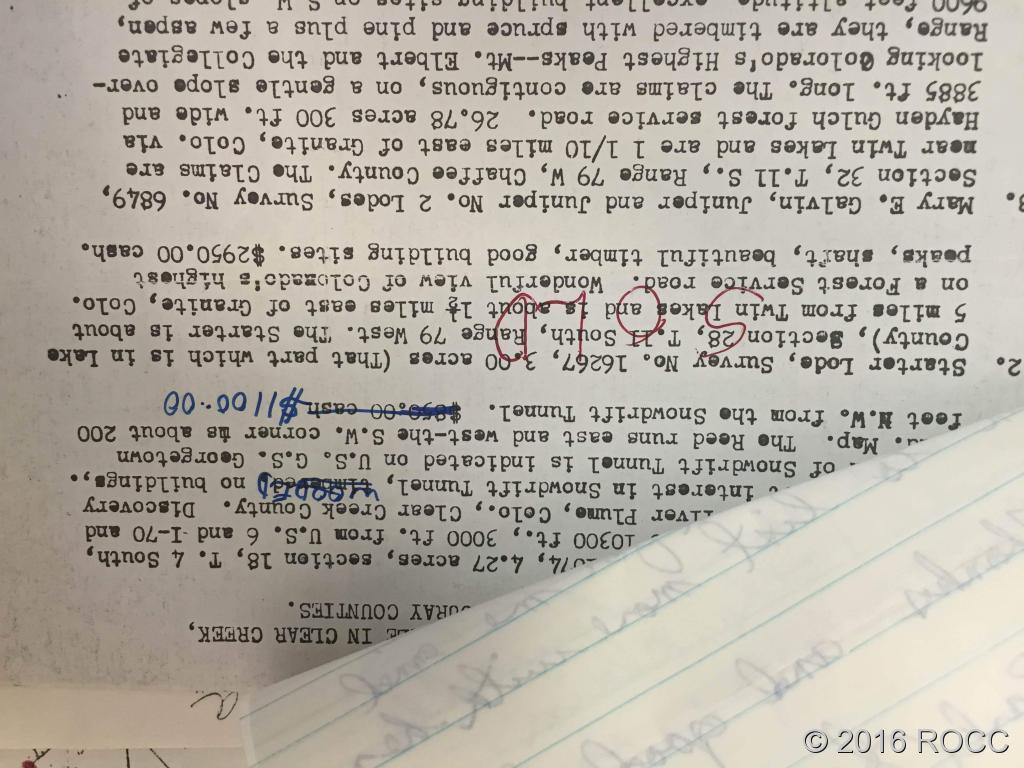 LE IN CLEAR CREEK,
OURAY COUNTIES.
4.27 acres, section 18, T. 4 South,
10300 ft., 3000 ft. from U.S. 6 and I-70 and
Plume, Colo., Clear Creek County. Discovery
WOODED
interest in Snowdrift Tunnel, timbered, no buildings,.
of Snowdrift Tunnel is indicated on U.S. G.S. Georgetown
Map. The Reed runs east and west-the S.W. corner is about 200
feet N.W. from the Snowdrift Tunnel. $850.00 cash $1100.00
2. Starter Lode, Survey No. 16267, 3.00 acres (That part which is in Lake
County), Section 28, T. 11 South, Range 79 West. The Starter is about
5 miles from Twin Lakes and is about 1½ miles east of Granite, Colo.
on a Forest Service road. Wonderful view of Colorado's highest
peaks, shaft, beautiful timber, good building sites. $2950.00 cash.
SOLD
3. Mary E. Galvin, Juniper and Juniper No. 2 Lodes, Survey No. 6849,
Section 32, T.11 S., Range 79 W, Chaffee County. The Claims are
near Twin Lakes and are 1 1/10 miles east of Granite, Colo. via
Hayden Gulch forest service road. 26.78 acres 300 ft. wide and
3885 ft. long. The claims are contiguous, on a gentle slope over-
looking Colorado's Highest Peaks--Mt. Elbert and the Collegiate
Range, they are timbered with spruce and pine plus a few aspen,
9600 feet altitude, excellent building sites on S.W. slopes of
© 2016 ROCC